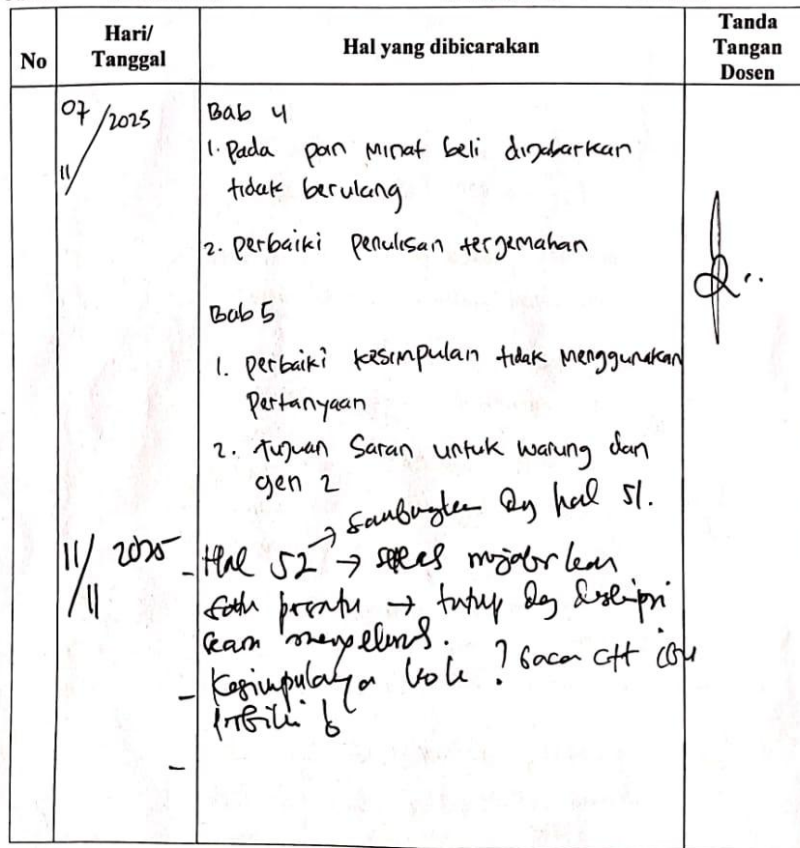 No
Hari/
Tanggal
Hal yang dibicarakan
Tanda
Tangan
Dosen
07/11/2025
Bab 4
1. Pada poin minat beli dijabarkan
tidak berulang
2. perbaiki penulisan terjemahan
Bab 5
1. perbaiki kesimpulan tidak menggunakan
Pertanyaan
2. tujuan Saran untuk warung dan
gen z
11/11 2025
→ Sambungkan dg hal 51.
- Hal 52 → menjabarkan
satu persatu → tutup dg deskripsi
kan
- Kesimpulannya ? baca ctt ibu
-